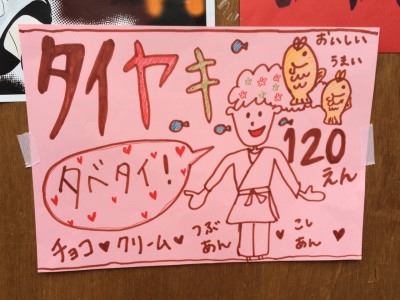 タイヤキ
おいしい
うまい
タベタイ!
120
えん
チョコ♥クリーム♥
つぶ
あん
♥
こし
あん
♥